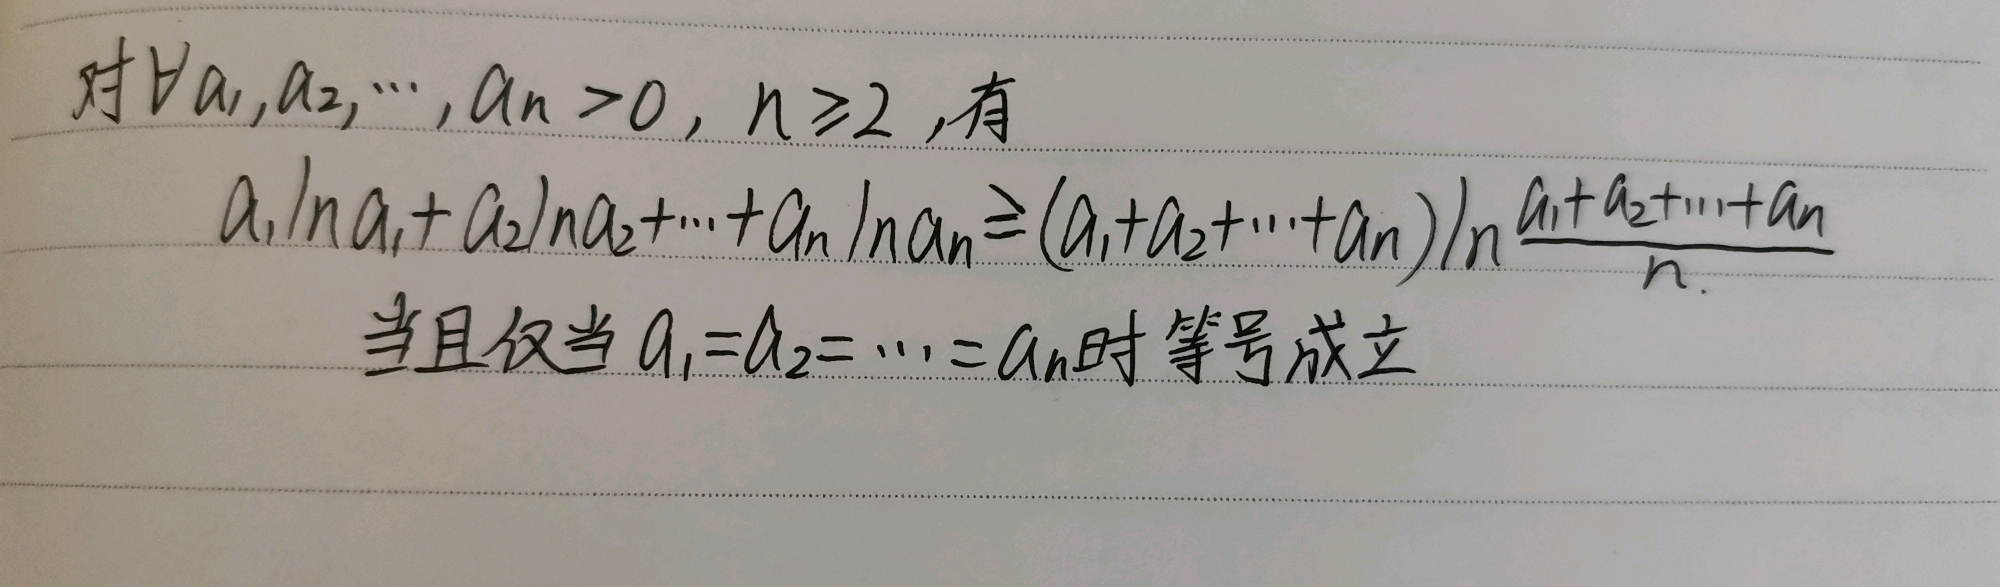 对∀a₁,a₂,…,aₙ>0, n≥2,有
a₁lna₁+a₂lna₂+…+aₙlnaₙ≥(a₁+a₂+…+aₙ)ln (a₁+a₂+…+aₙ)/n.
当且仅当a₁=a₂=…=aₙ时等号成立